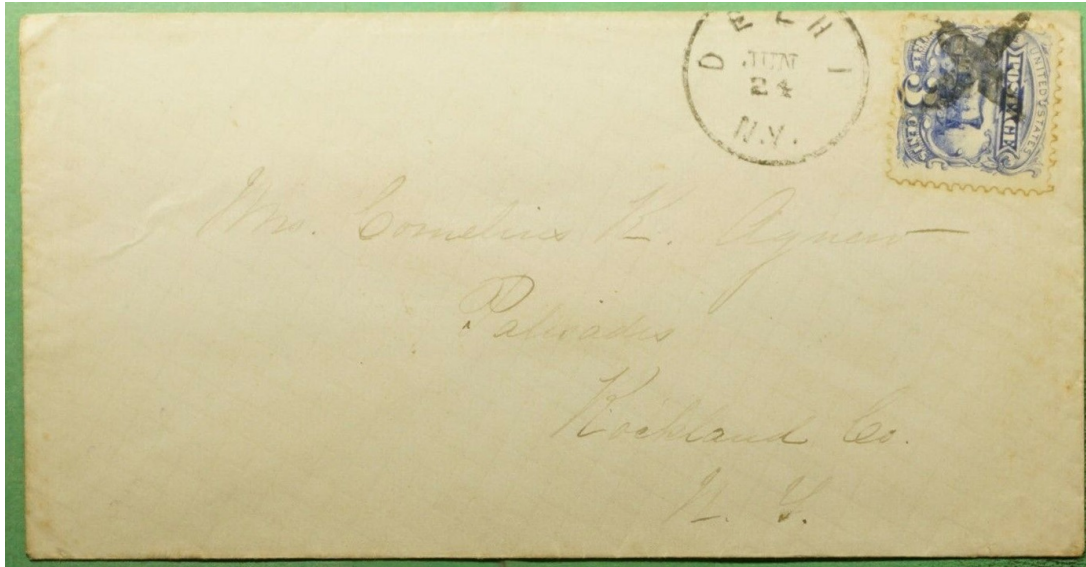 DELHI
JUN
24
N.Y.
UNITED STATES
POSTAGE
3
Mrs. Cornelius R. Agnew
Palisades
Rockland Co.
N. Y.